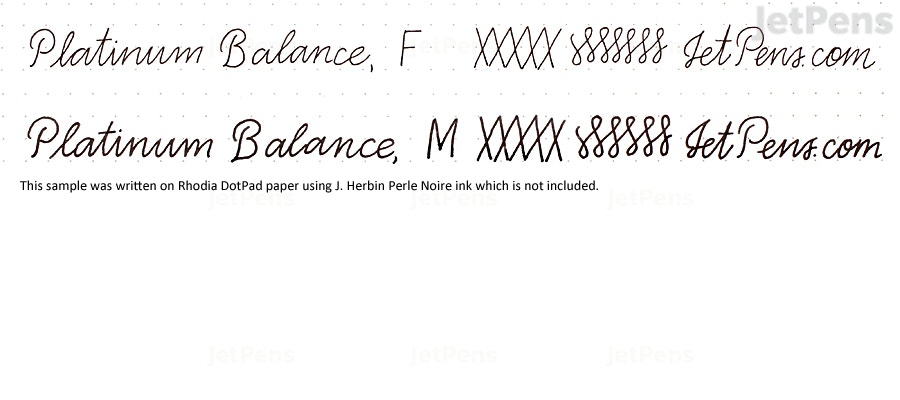 JetPens
Platinum Balance, F XXXX 8888888 JetPens.com
Platinum Balance, M XXXX 888888 JetPens.com
This sample was written on Rhodia DotPad paper using J. Herbin Perle Noire ink which is not included.
JetPens JetPens JetPens
JetPens JetPens JetPens